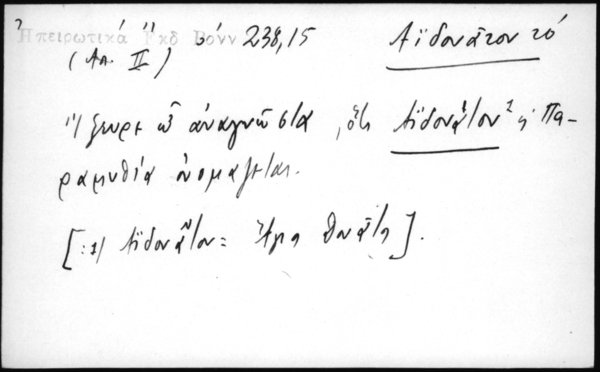 Ἠπειρωτικά Ἐκδ Βόνν σ. 238,15 Ἀϊδονᾶτον τό
(Ἀπ. II)
Ἤξευρε ὦ ἀναγνῶστα, ὅτι Ἀϊδονᾶτον ἡ Πα-
ραμυθία ὀνομάζεται.
[:1) Ἀϊδονᾶτον = Ἅγιος Δονᾶτος].